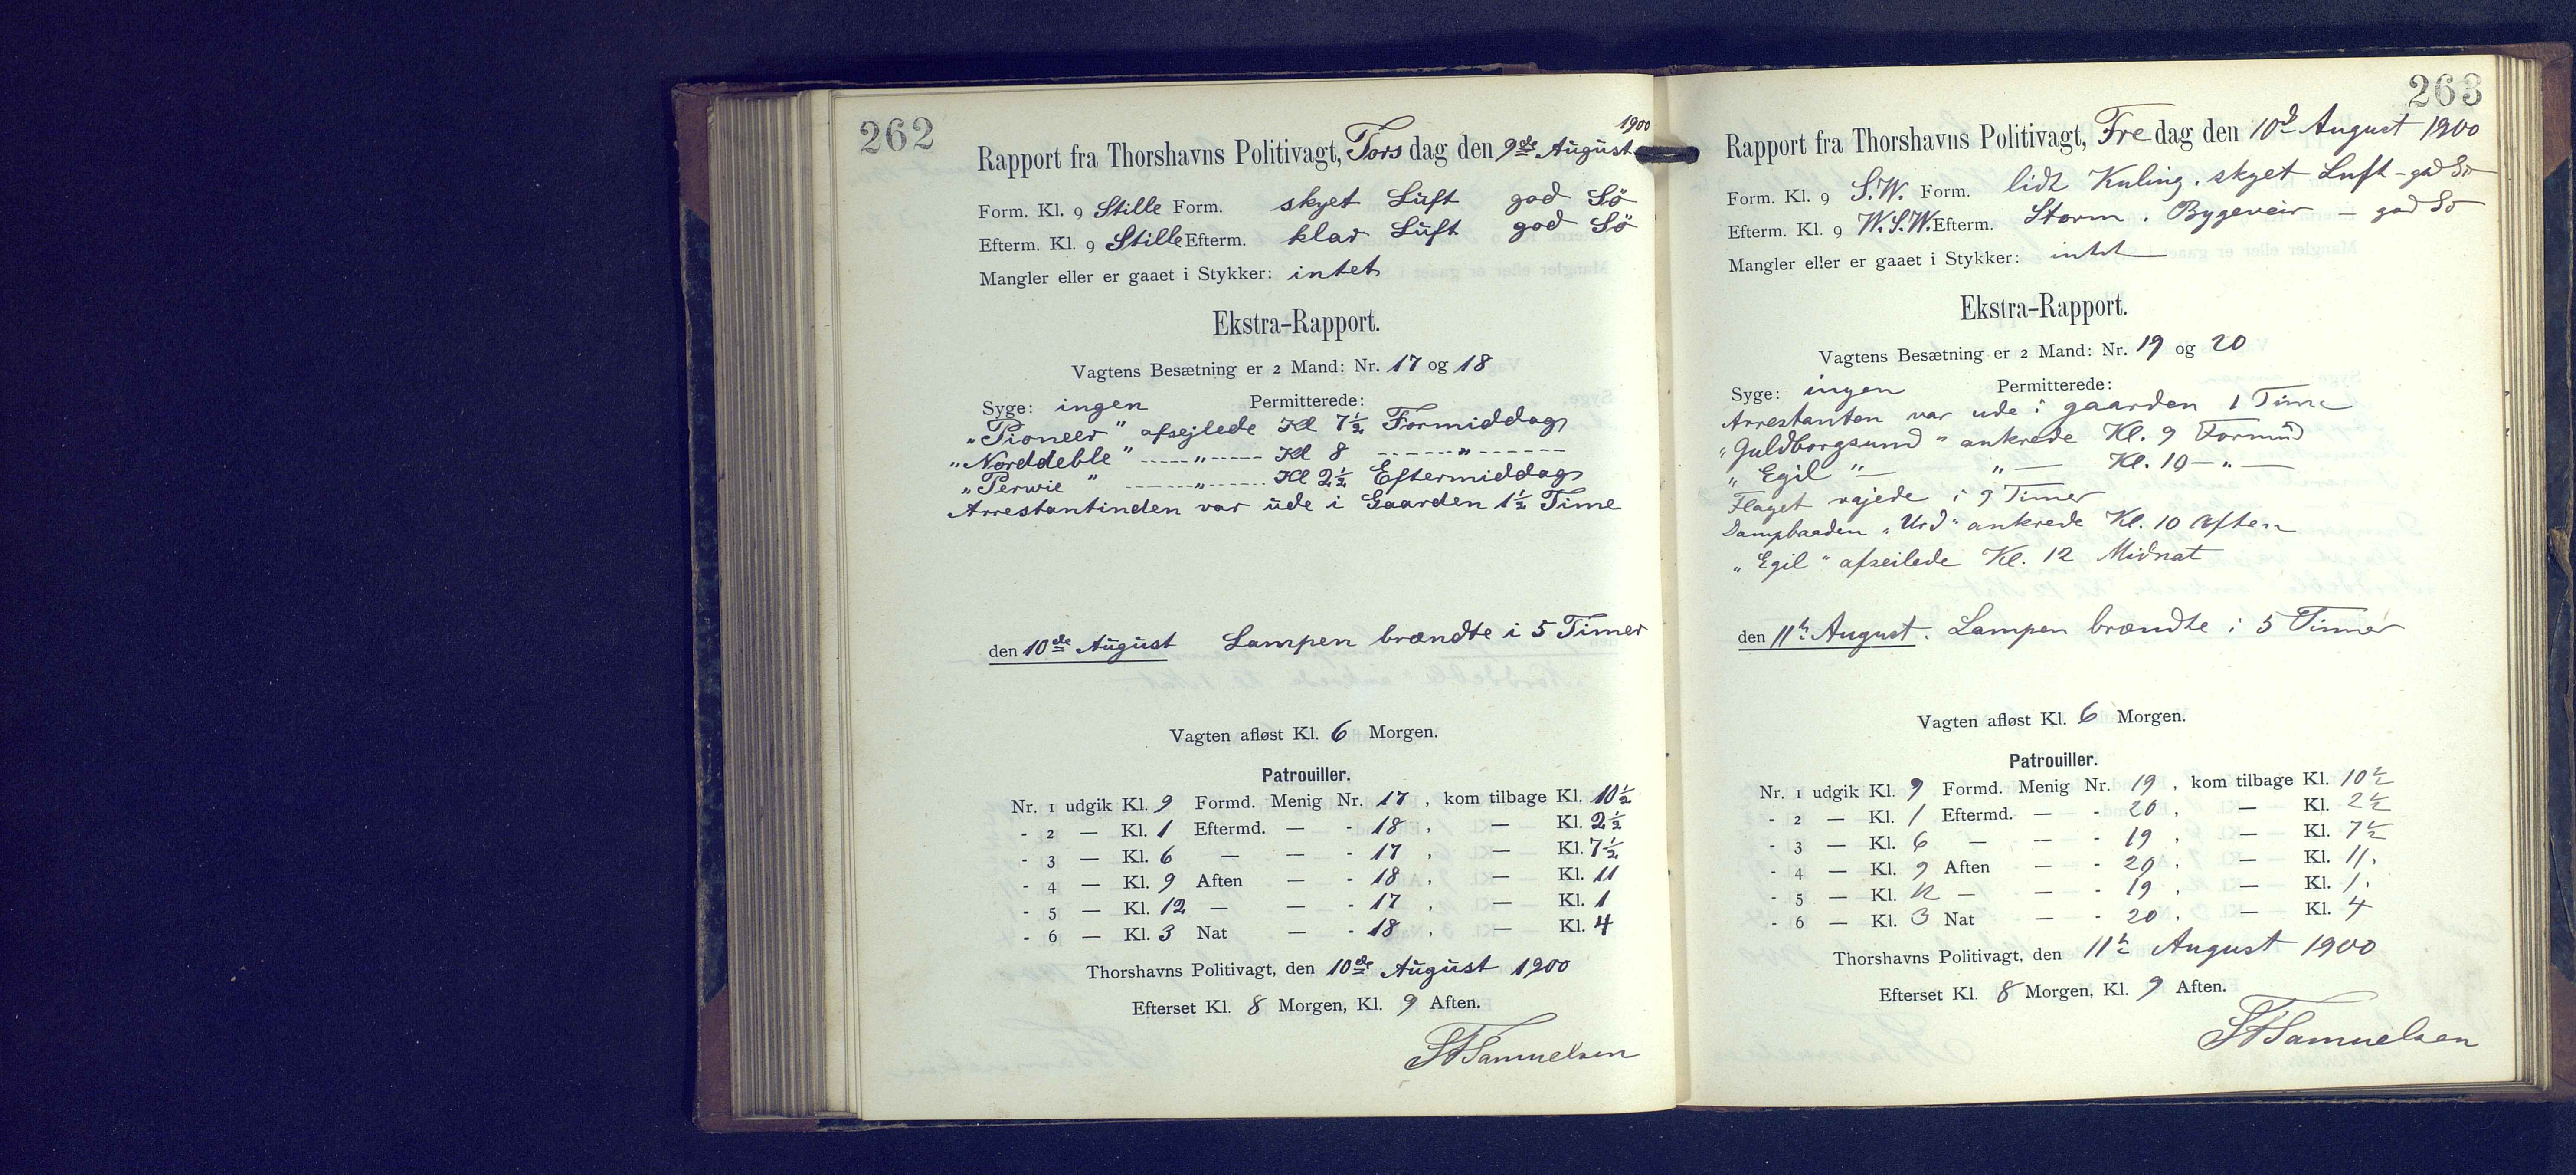 262
1900
Rapport fra Thorshavns Politivagt, Torsdag den 9de August
Form. Kl. 9 Stille Form. skyet Luft god Sö
Efterm. Kl. 9 Stille Efterm. klar Luft god Sö
Mangler eller er gaaet i Stykker: intet
Ekstra-Rapport.
Vagtens Besætning er 2 Mand: Nr. 17 og 18
Syge: ingen Permitterede:
"Pioneer" afsejlede Kl 7½ Formiddag
"Norddeble" ----"---- Kl 8 ----"----
"Perwie" ----"---- Kl 2½ Eftermiddag
Arrestantinden var ude i Gaarden 1½ Time
den 10de August Lampen brændte i 5 Timer
Vagten afløst Kl. 6 Morgen.
Patrouiller.
Nr. 1 udgik Kl. 9 Formd. Menig Nr. 17, kom tilbage Kl. 10½
- 2 — Kl. 1 Eftermd. — - 18, — Kl. 2½
- 3 — Kl. 6 — — - 17, — Kl. 7½
- 4 — Kl. 9 Aften — - 18, — Kl. 11
- 5 — Kl. 12 — — - 17, — Kl. 1
- 6 — Kl. 3 Nat — - 18, — Kl. 4
Thorshavns Politivagt, den 10de August 1900
Efterset Kl. 8 Morgen, Kl. 9 Aften.
SFSamuelsen
263
Rapport fra Thorshavns Politivagt, Fredag den 10d August 1900
Form. Kl. 9 S.W. Form. lidt Kuling. skyet Luft - god Sö
Efterm. Kl. 9 W.S.W. Efterm. Storm. Bygeveir — god Sö
Mangler eller er gaaet i Stykker: intet
Ekstra-Rapport.
Vagtens Besætning er 2 Mand: Nr. 19 og 20
Syge: ingen Permitterede:
Arrestanten var ude i gaarden 1 Time
"Guldborgsund" ankrede Kl. 9 Formid
"Egil" — " — Kl. 10 — " —
Flaget vajede i 9 Timer
Dampbaaden "Urd" ankrede Kl. 10 Aften
"Egil" afseilede Kl. 12 Midnat
den 11t August. Lampen brændte i 5 Timer
Vagten afløst Kl. 6 Morgen.
Patrouiller.
Nr. 1 udgik Kl. 9 Formd. Menig Nr. 19, kom tilbage Kl. 10½
- 2 — Kl. 1 Eftermd. — - 20, — Kl. 2½
- 3 — Kl. 6 — — - 19, — Kl. 7½
- 4 — Kl. 9 Aften — - 20, — Kl. 11.
- 5 — Kl. 12 — — - 19, — Kl. 1.
- 6 — Kl. 3 Nat — - 20, — Kl. 4
Thorshavns Politivagt, den 11t August 1900
Efterset Kl. 8 Morgen, Kl. 9 Aften.
SFSamuelsen